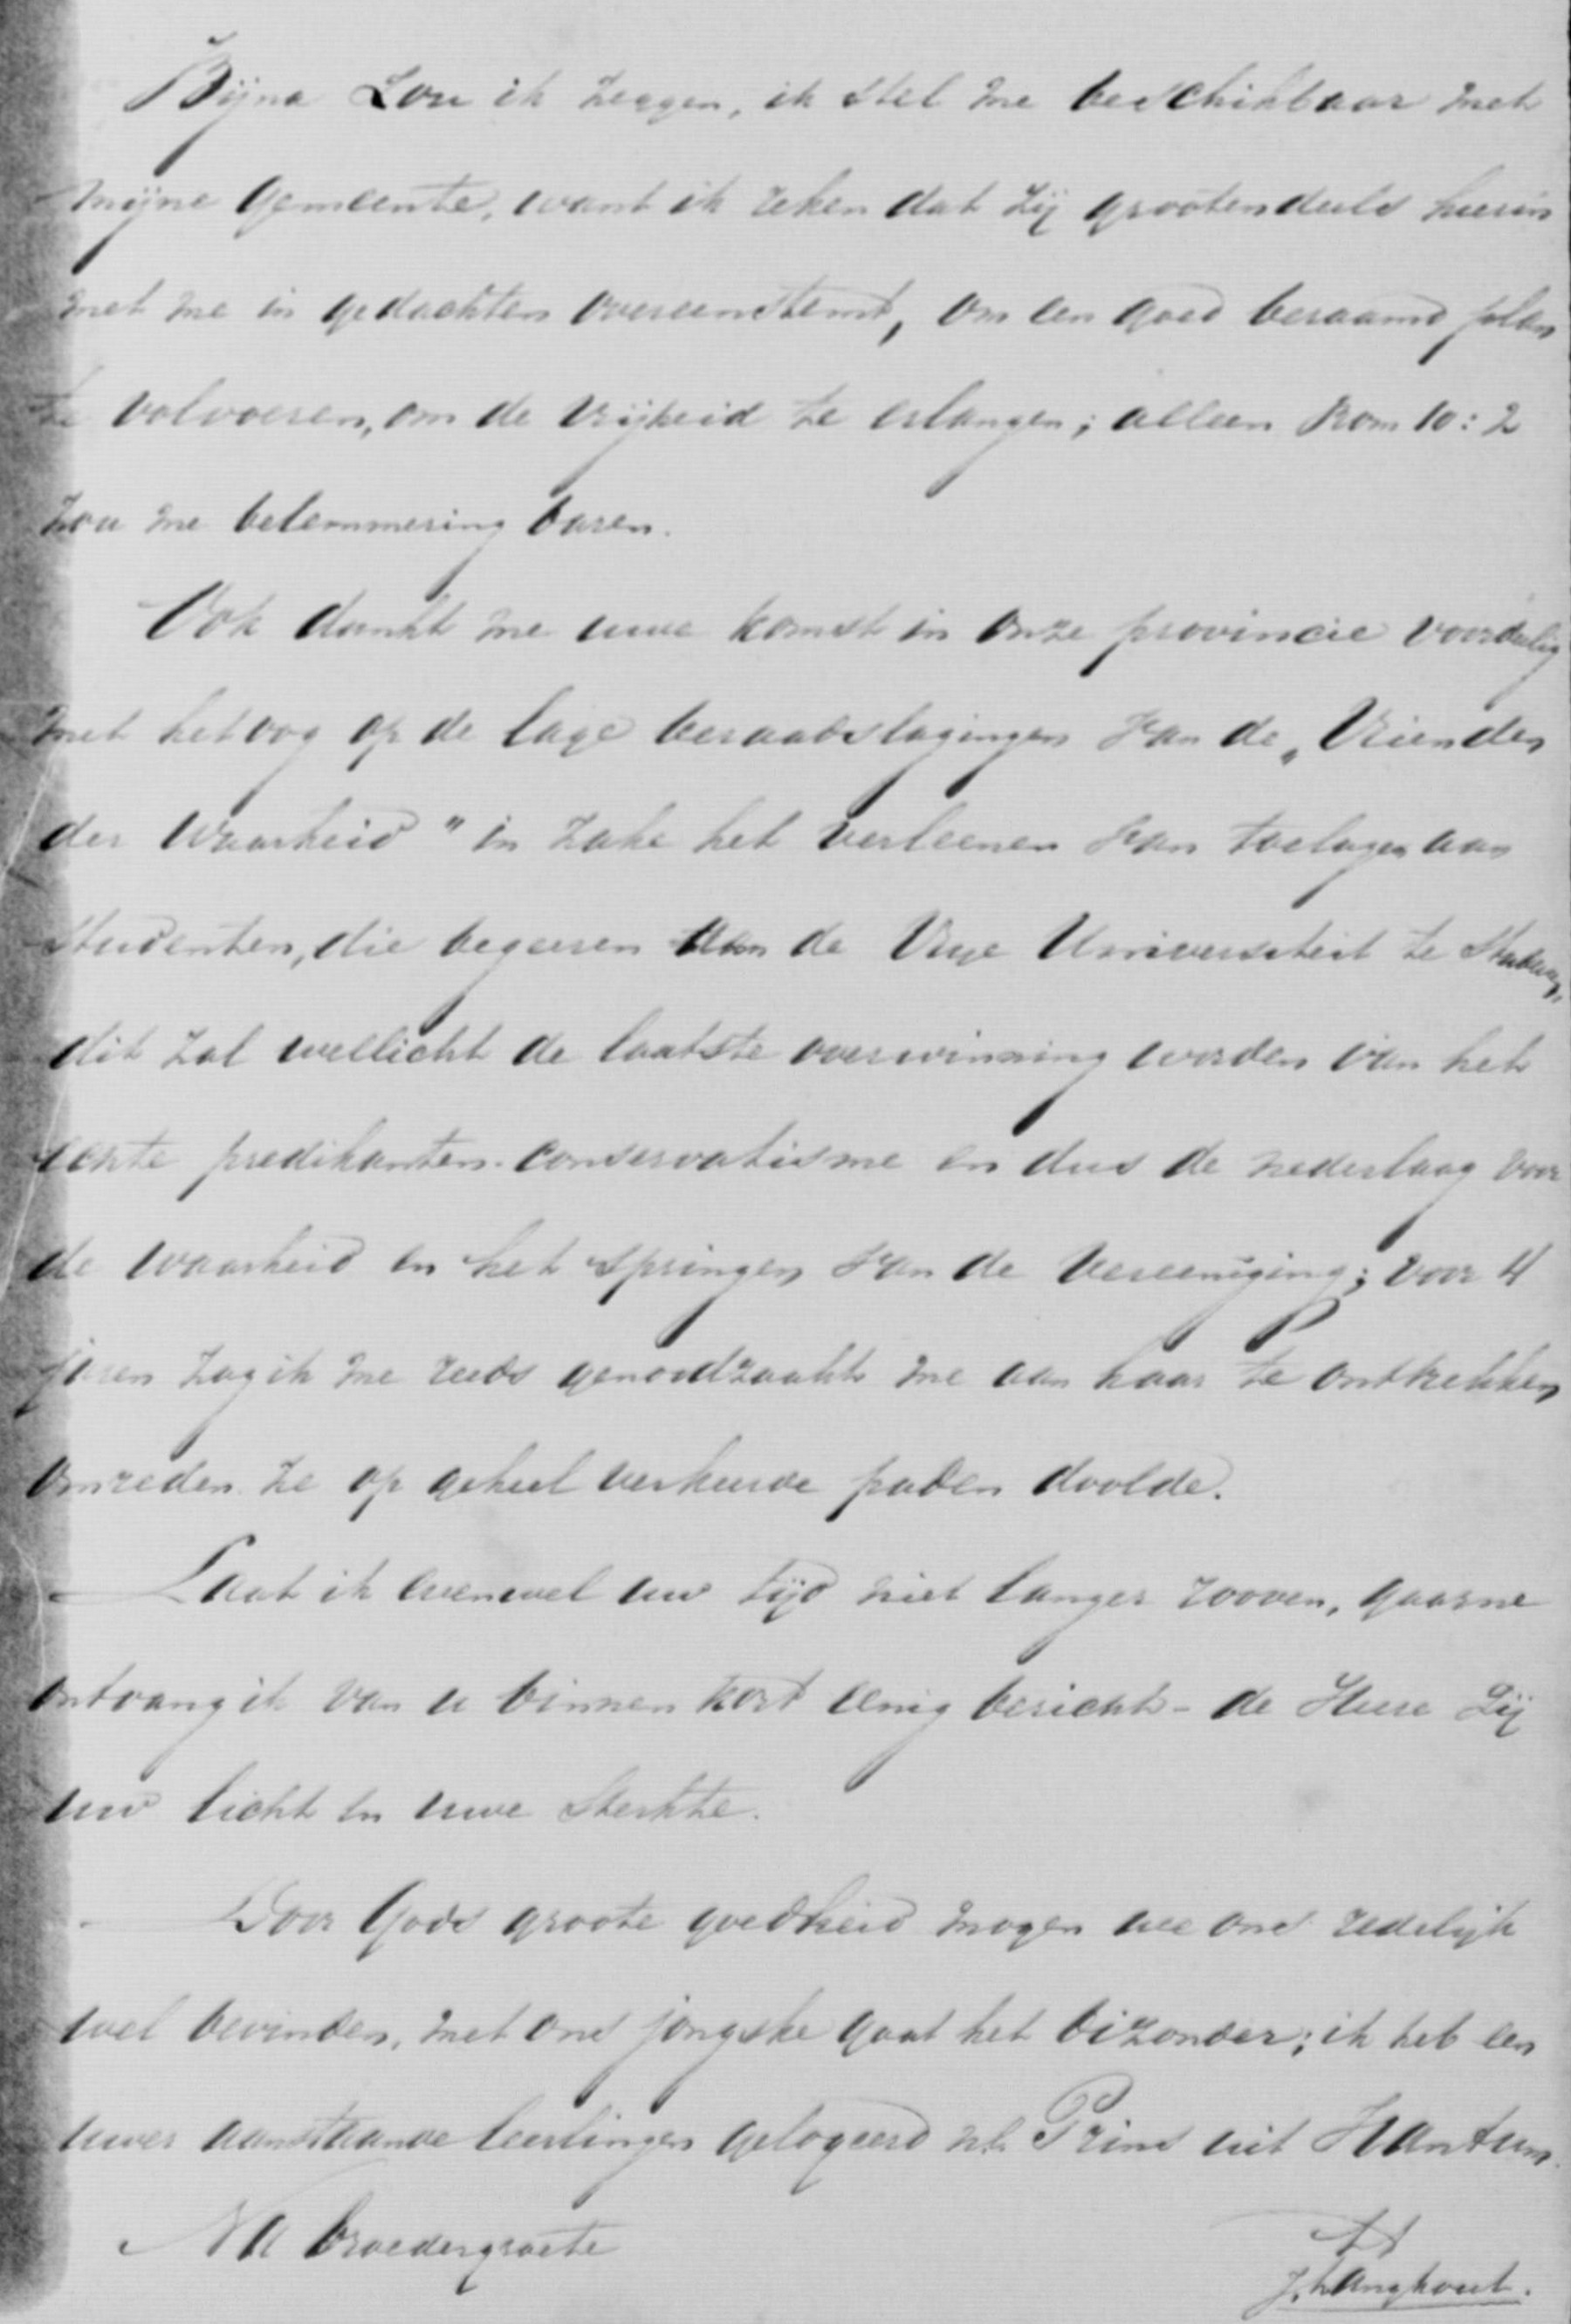 Bijna zou ik zeggen, ik stel me beschikbaar met
mijne Gemeente, want ik reken dat zij grootendeels hierin
met me in gedachten overeenstemt, om een goed beraamd plan
te volvoeren, om de vrijheid te erlangen; alleen Rom 10:2
zou me belemmering baren.
Ook dunkt me uwe komst in onze provincie voordeelig
met het oog op de lage beraadslagingen van de „Vrienden
der Waarheid" in zake het verleenen van toelagen aan
studenten, die begeeren aan de Vrije Universiteit te studeeren,
dit zal wellicht de laatste overwinning worden van het
echte predikanten-conservatisme en dus de nederlaag voor
de waarheid en het springen van de Vereeniging; voor 4
jaren zag ik me reeds genoodzaakt me aan haar te onttrekken
omreden ze op geheel verkeerde paden doolde.
Laat ik evenwel uw tijd niet langer rooven, gaarne
ontvang ik van u binnen kort eenig bericht - de Heere zij
uw licht en uwe sterkte.
Door Gods groote goedheid mogen we ons redelijk
wel bevinden, met ons jongske gaat het bizonder; ik heb een
uwer aanstaande leerlingen gelogeerd nl. Prins uit Hantum.
Na broedergroete
J. Langhout.